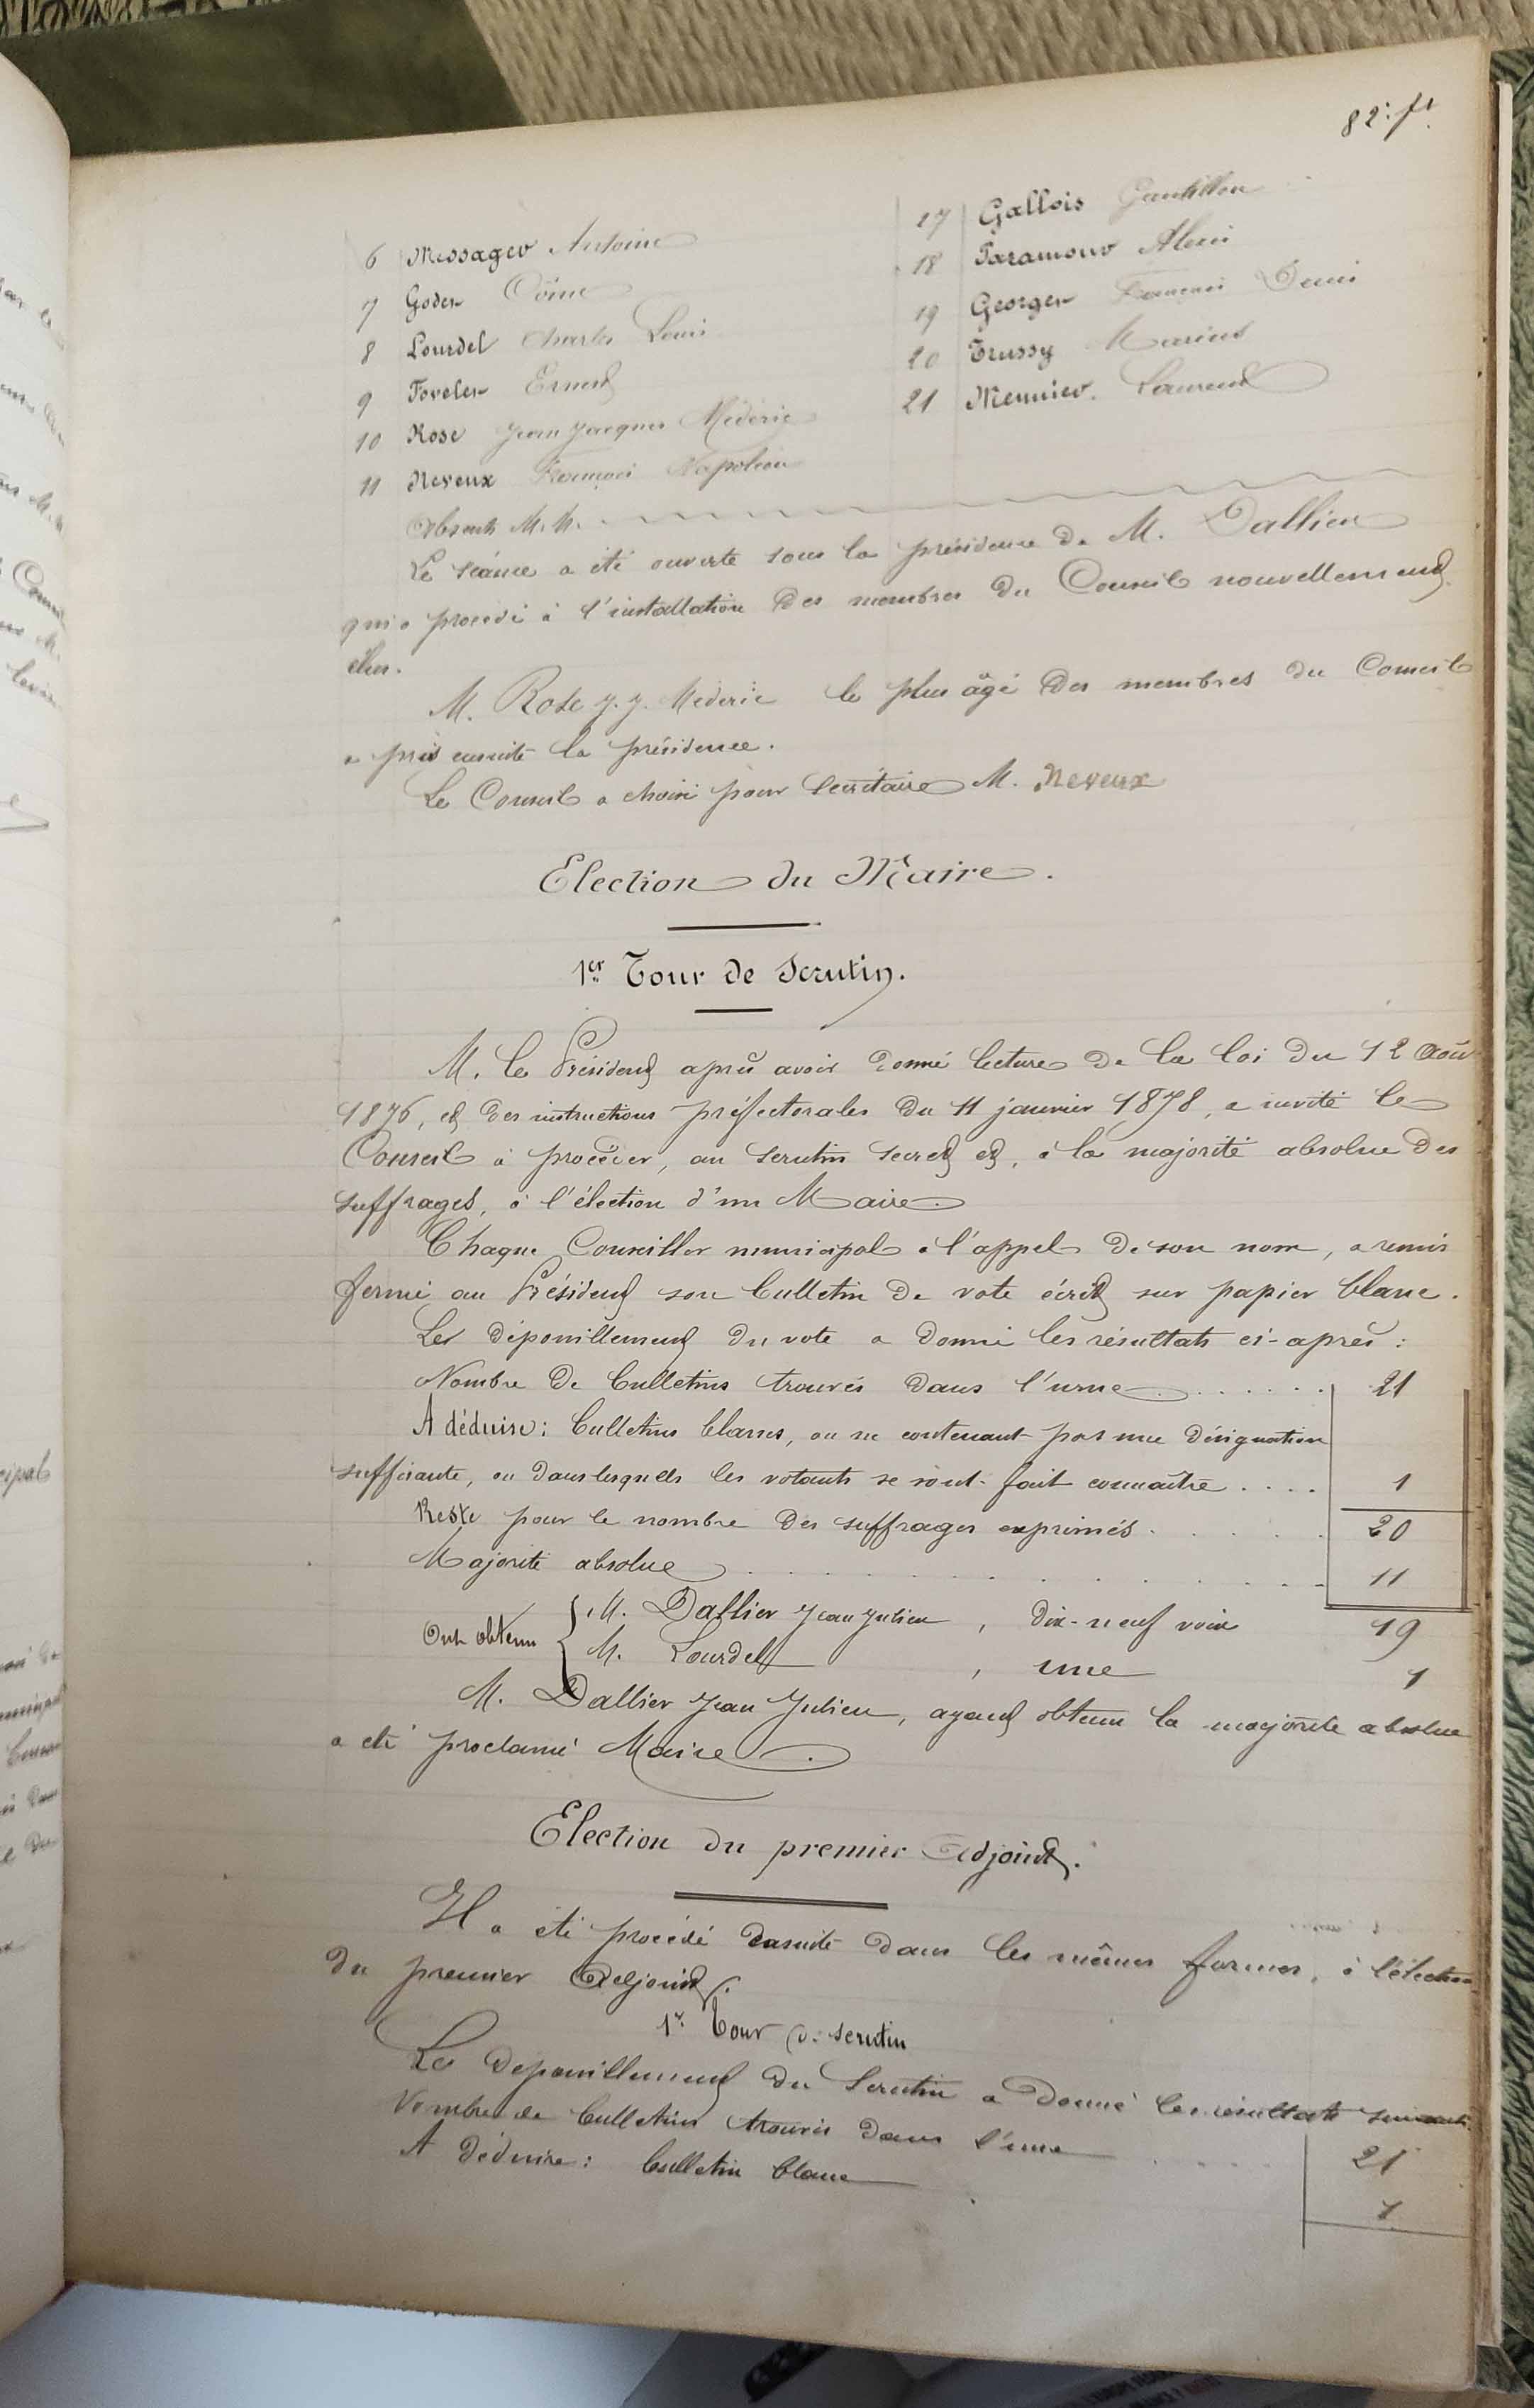 82: ft
6 Messager Antoine
7 Goder Côme
8 Lourdel Charles Louis
9 Foveler Ernest
10 Rose Jean Jacques Médéric
11 Neveux François Napoléon
17 Gallois
18 Paramour Alexis
19 Georger François Denis
20 Trussy Marius
21 Meunier Laurent
Absents M.M.
La séance a été ouverte sous la présidence de M. Dallier
qui a procédé à l'installation des membres du Conseil nouvellement
élus.
M. Rose J. J. Médéric le plus âgé des membres du Conseil
a pris ensuite la présidence.
Le Conseil a choisi pour secrétaire M. Neveux
Election du Maire.
1er Tour de Scrutin.
M. le Président après avoir donné lecture de la loi du 12 Août
1876, et des instructions préfectorales du 11 janvier 1878, a invité le
Conseil à procéder, au scrutin secret et, à la majorité absolue des
suffrages, à l'élection d'un Maire.
Chaque Conseiller municipal à l'appel de son nom, a remis
fermé au Président son bulletin de vote écrit sur papier blanc.
Le dépouillement du vote a donné les résultats ci-après :
Nombre de bulletins trouvés dans l'urne . . . . . . 21
A déduire : bulletins blancs, ou ne contenant pas une désignation
suffisante, ou dans lesquels les votants se sont fait connaître . . . . 1
Reste pour le nombre des suffrages exprimés . . . . . 20
Majorité absolue . . . . . . . . . . 11
Ont obtenu { M. Dallier Jean Julien, dix-neuf voix 19
M. Lourdel, une 1
M. Dallier Jean Julien, ayant obtenu la majorité absolue
a été proclamé Maire.
Election du premier Adjoint.
Il a été procédé ensuite dans les mêmes formes, à l'élection
du premier Adjoint.
1er Tour de scrutin
Le dépouillement du Scrutin a donné les résultats suivants
Nombre de bulletins trouvés dans l'urne . . . . 21
A déduire : bulletin blanc 1